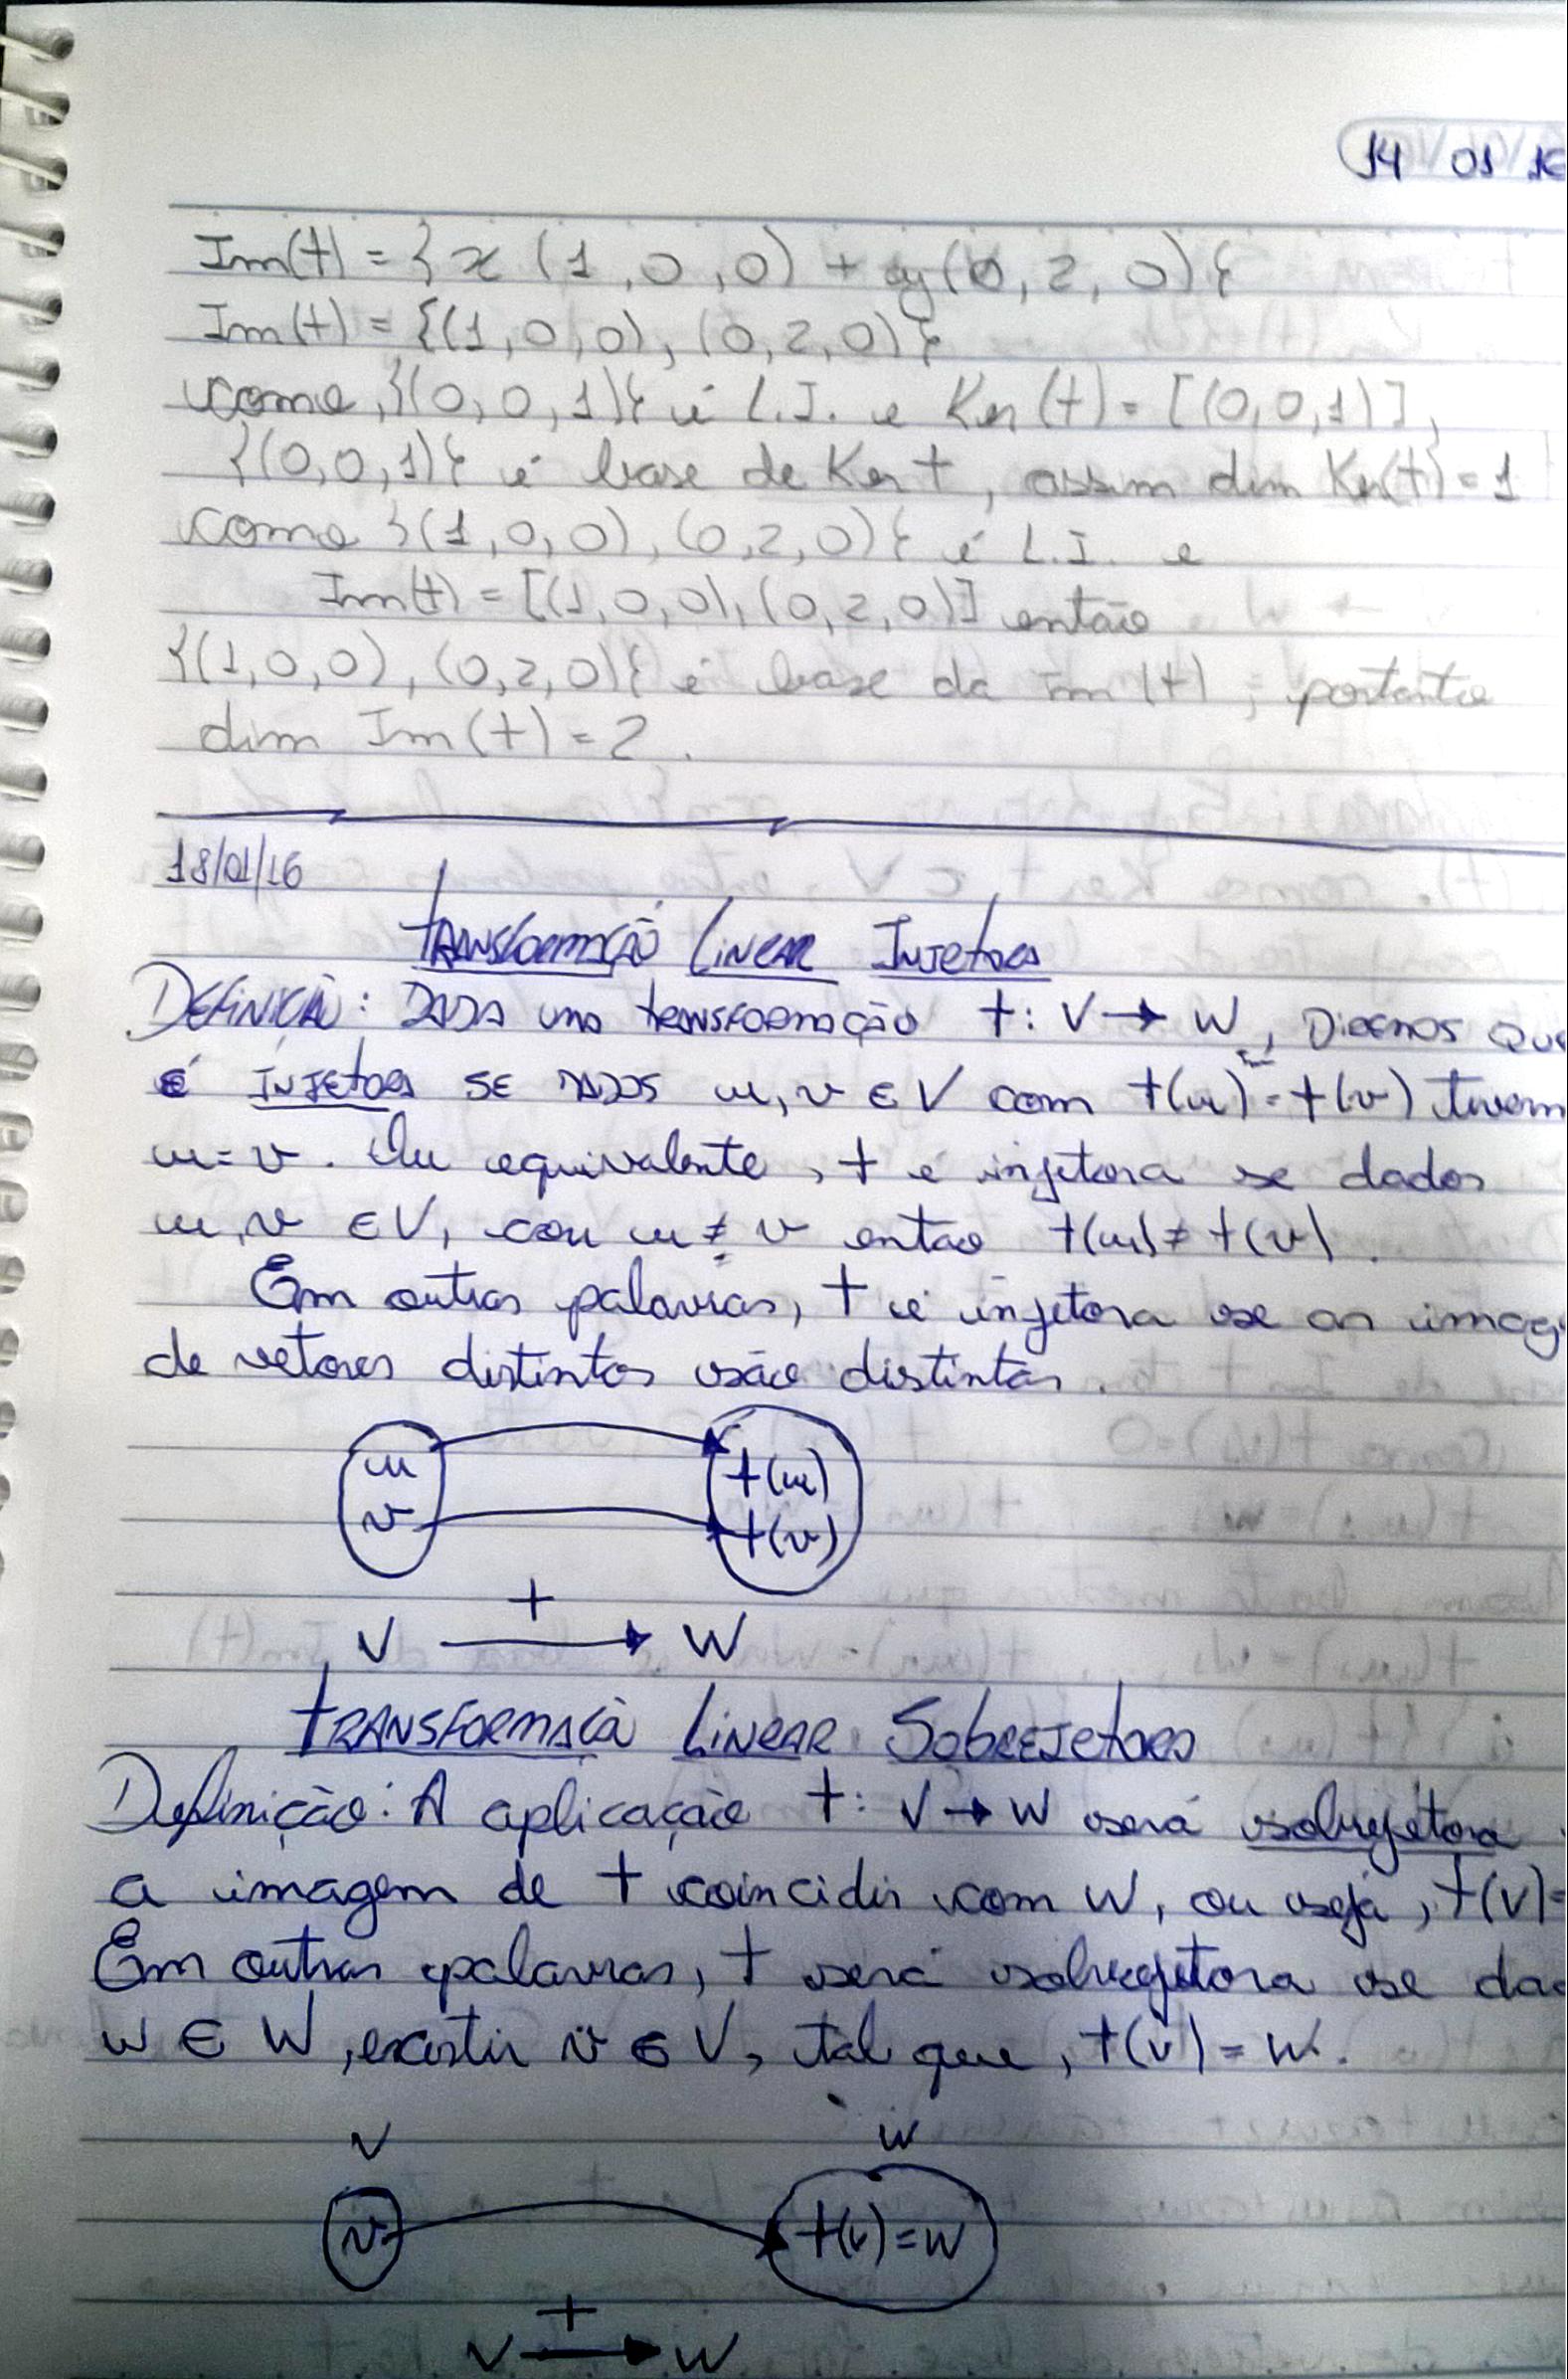 14 01 16
Im(t) = { x (1, 0, 0) + y(0, 2, 0)}
Im(t) = {(1, 0, 0), (0, 2, 0)}
como, {(0, 0, 1)} é L.I. e Ker(t) = [(0,0,1)],
{(0,0,1)} é base de Ker t, assim dim Ker(t) = 1
como {(1, 0, 0), (0,2,0)} é L.I. e
Im(t) = [(1,0,0), (0, 2, 0)] então
{(1,0,0), (0,2,0)} é base da Im (t), portanto
dim Im(t) = 2.
18/01/16
Transformação Linear Injetora
Definição: Dada uma transformação t: V → W, Diremos que
é Injetora se dados u, v ∈ V com t(u) = t(v) tivem
u = v. Ou equivalente, t é injetora se dados
u, v ∈ V, com u ≠ v então t(u) ≠ t(v).
Em outras palavras, t é injetora se as imag
de vetores distintos são distintas.
u t(u)
v t(v)
t
V → W
Transformaçã Linear Sobrejetora
Definição: A aplicação t: V → W será sobrejetora
a imagem de t coincidir com W, ou seja, t(V) =
Em outras palavras, t será sobrejetora se dad
w ∈ W, existir v ∈ V, tal que, t(v) = w.
V W
v t(v) = w
t
V → W